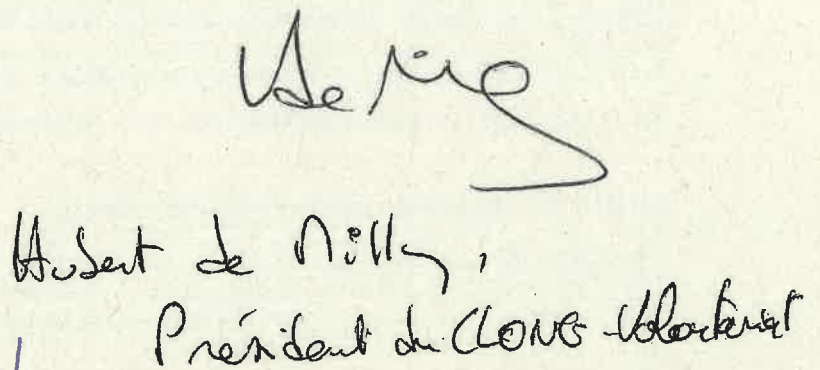 Hubert de Milly,
Président du CLONG-Volontariat